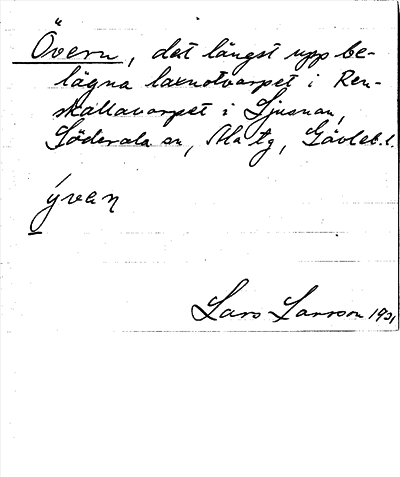 Övern, det längst upp be-
lägna laxnotvarpet i Ren-
skallavarpet i Ljusnan,
Söderala sn, Ala tg, Gävleb. l.
ývan
Lars Larsson 1931